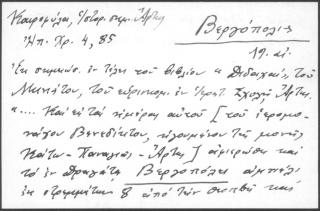 Καραμῆλα, Ἱστορ. σημ. Ἄρτης
Ἠπ. Χρ. 4, 85
Βεργόπολις
19. αἰ.
Ἐκ σημειώσ. ἐν τέλει τοῦ βιβλίου « Διδαχαί », τοῦ
Μηνιάτου, τοῦ εὑρισκομ. ἐν Ἱερατ. Σχολῇ Ἄρτης.
« .... Καὶ εἰς τὰς ἡμέρας αὐτοῦ [ τοῦ ἱερομο-
νάχου Βενεδίκτου, ἡγουμένου τῆς μονῆς
Κάτω - Παναγιᾶς - Ἄρτης ] ἀφιερώθη καὶ
τὸ ἐν Βεργόπολει ἀμπέλι
ἐκ στρεμμάτων 8 ἀπὸ τὴν καὶ